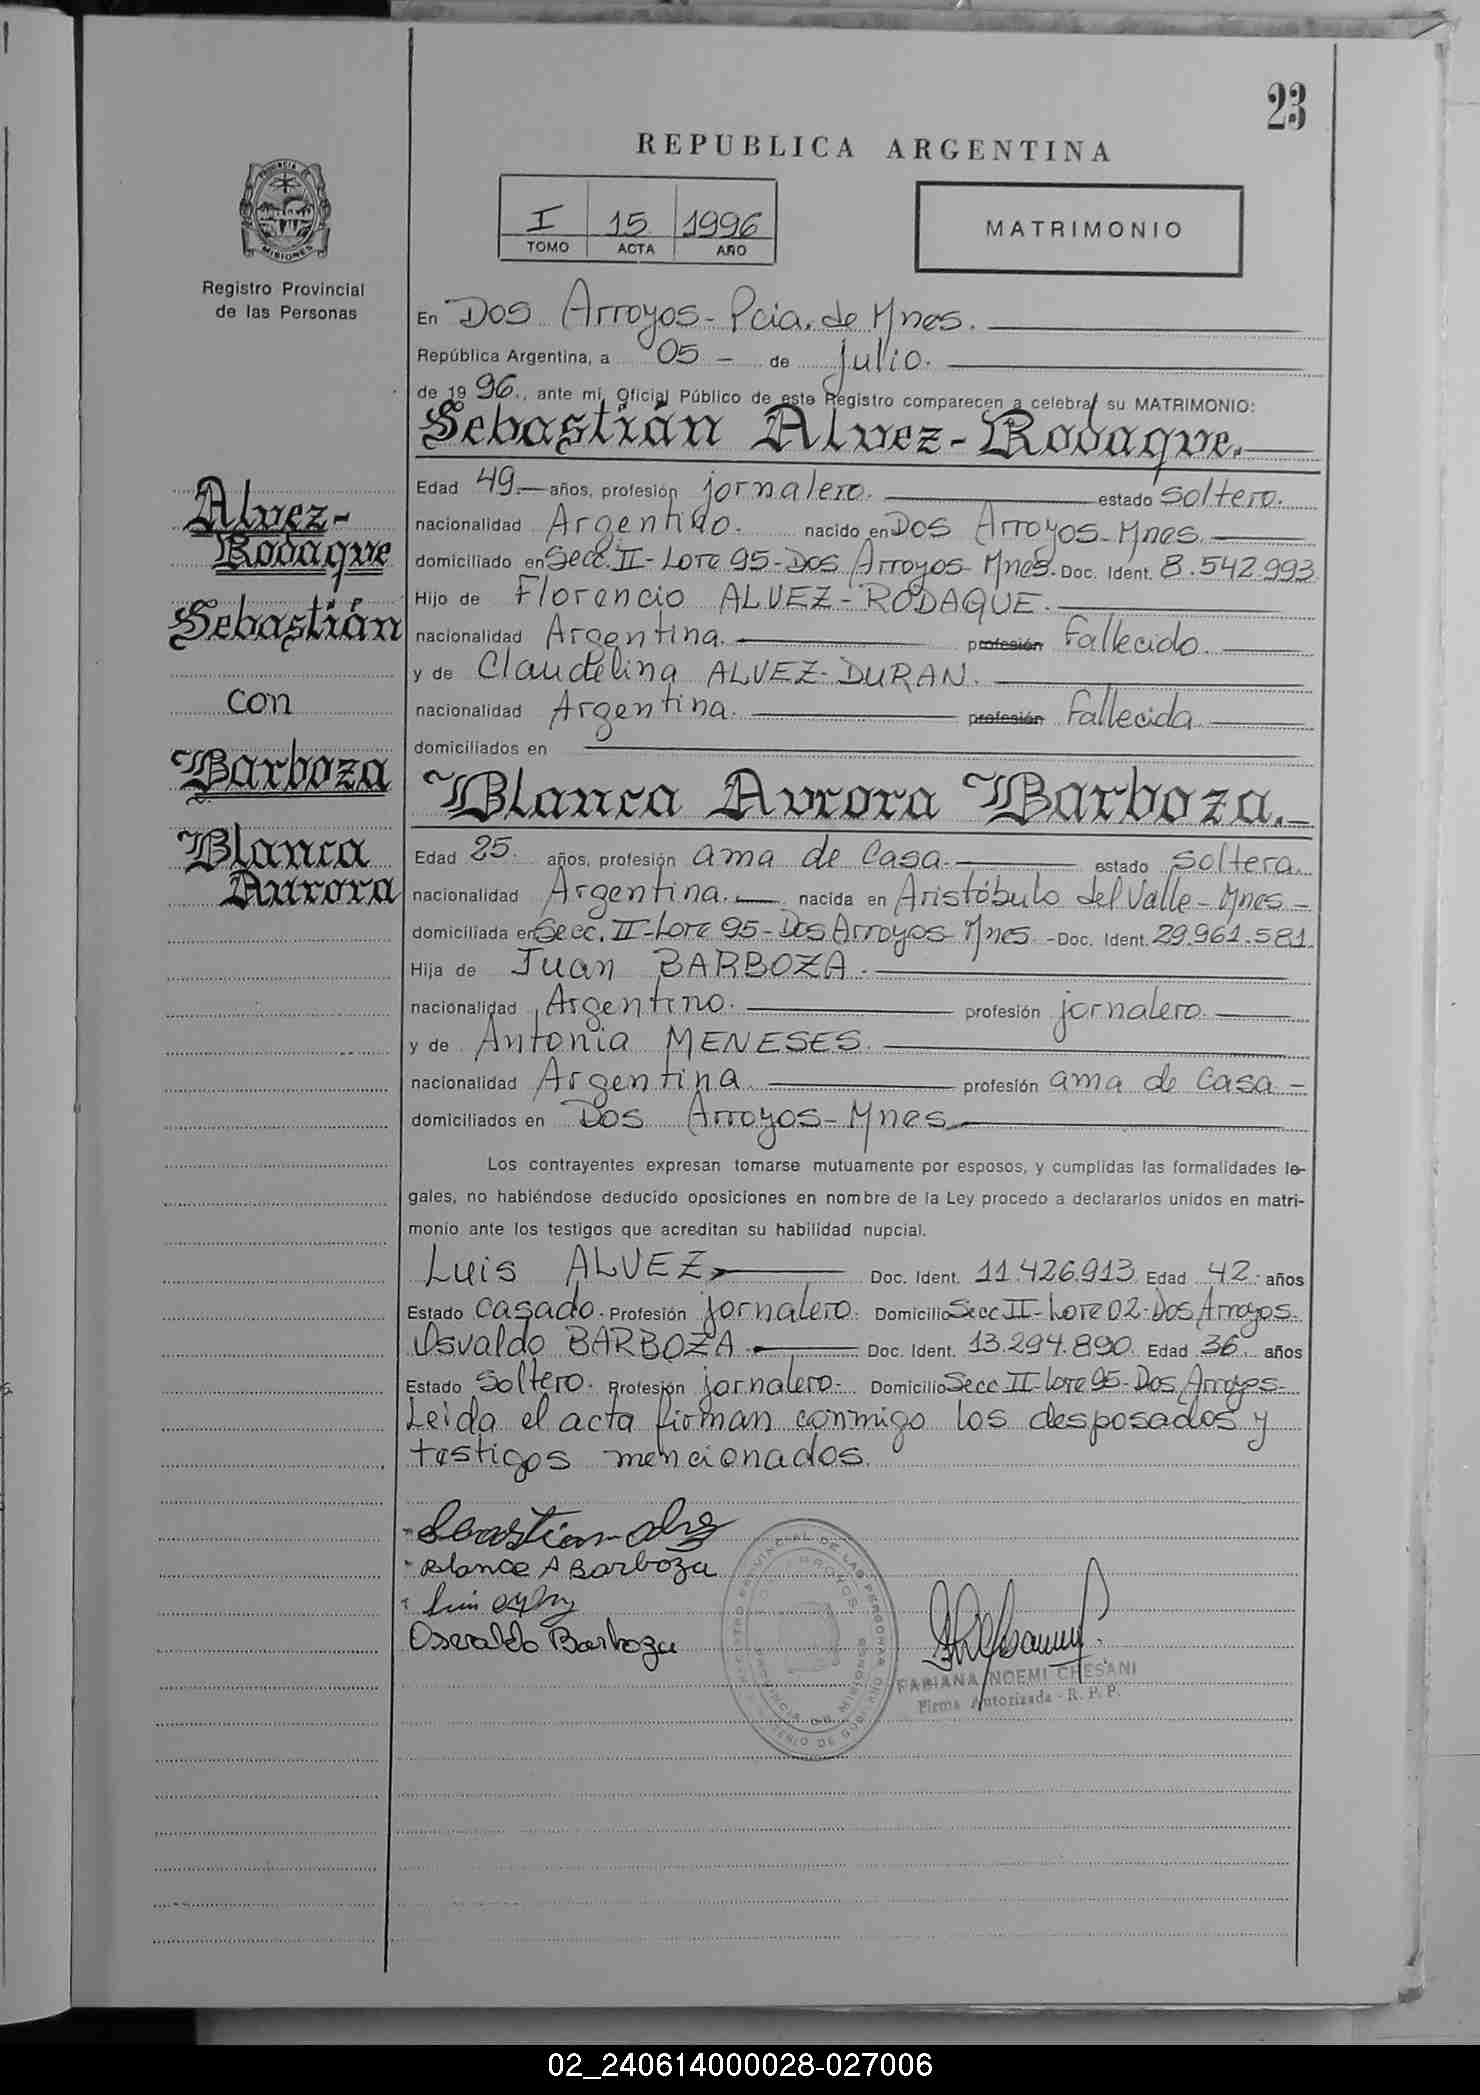 23
REPUBLICA ARGENTINA
I 15 1996
TOMO ACTA AÑO
MATRIMONIO
PROVINCIA DE
MISIONES
Registro Provincial
de las Personas
Alvez-
Rodaque
Sebastián
con
Barboza
Blanca
Aurora
En Dos Arroyos - Pcia. de Mnes.
República Argentina, a 05 - de julio.
de 1996., ante mi, Oficial Público de este Registro comparecen a celebrar su MATRIMONIO:
Sebastián Alvez-Rodaque.
Edad 49.- años, profesión jornalero. estado soltero.
nacionalidad Argentino. nacido en Dos Arroyos - Mnes.
domiciliado en Secc. II - Lote 95 - Dos Arroyos Mnes. Doc. Ident. 8.542.993
Hijo de Florencio ALVEZ - RODAQUE.
nacionalidad Argentina. profesión Fallecido.
y de Claudelina ALVEZ - DURAN.
nacionalidad Argentina. profesión Fallecida
domiciliados en
Blanca Aurora Barboza.-
Edad 25. años, profesión ama de casa. estado soltera.
nacionalidad Argentina. nacida en Aristóbulo del Valle - Mnes -
domiciliada en Secc. II - Lote 95 - Dos Arroyos Mnes. - Doc. Ident. 29.961.581.
Hija de Juan BARBOZA.
nacionalidad Argentino. profesión jornalero.
y de Antonia MENESES.
nacionalidad Argentina profesión ama de casa -
domiciliados en Dos Arroyos - Mnes
Los contrayentes expresan tomarse mutuamente por esposos, y cumplidas las formalidades le-
gales, no habiéndose deducido oposiciones en nombre de la Ley procedo a declararlos unidos en matri-
monio ante los testigos que acreditan su habilidad nupcial.
Luis ALVEZ Doc. Ident. 11.426.913 Edad 42 años
Estado casado. Profesión jornalero. Domicilio Secc II - Lote 02 - Dos Arroyos.
Osvaldo BARBOZA Doc. Ident. 13.294.890 Edad 36 años
Estado soltero. Profesión jornalero. Domicilio Secc II - Lote 95 - Dos Arroyos-
Leida el acta firman conmigo los desposados y
testigos mencionados.
Blanca A Barboza
Osvaldo Barboza
FABIANA NOEMI CHESANI
Firma Autorizada - R. P. P.
02_240614000028-027006